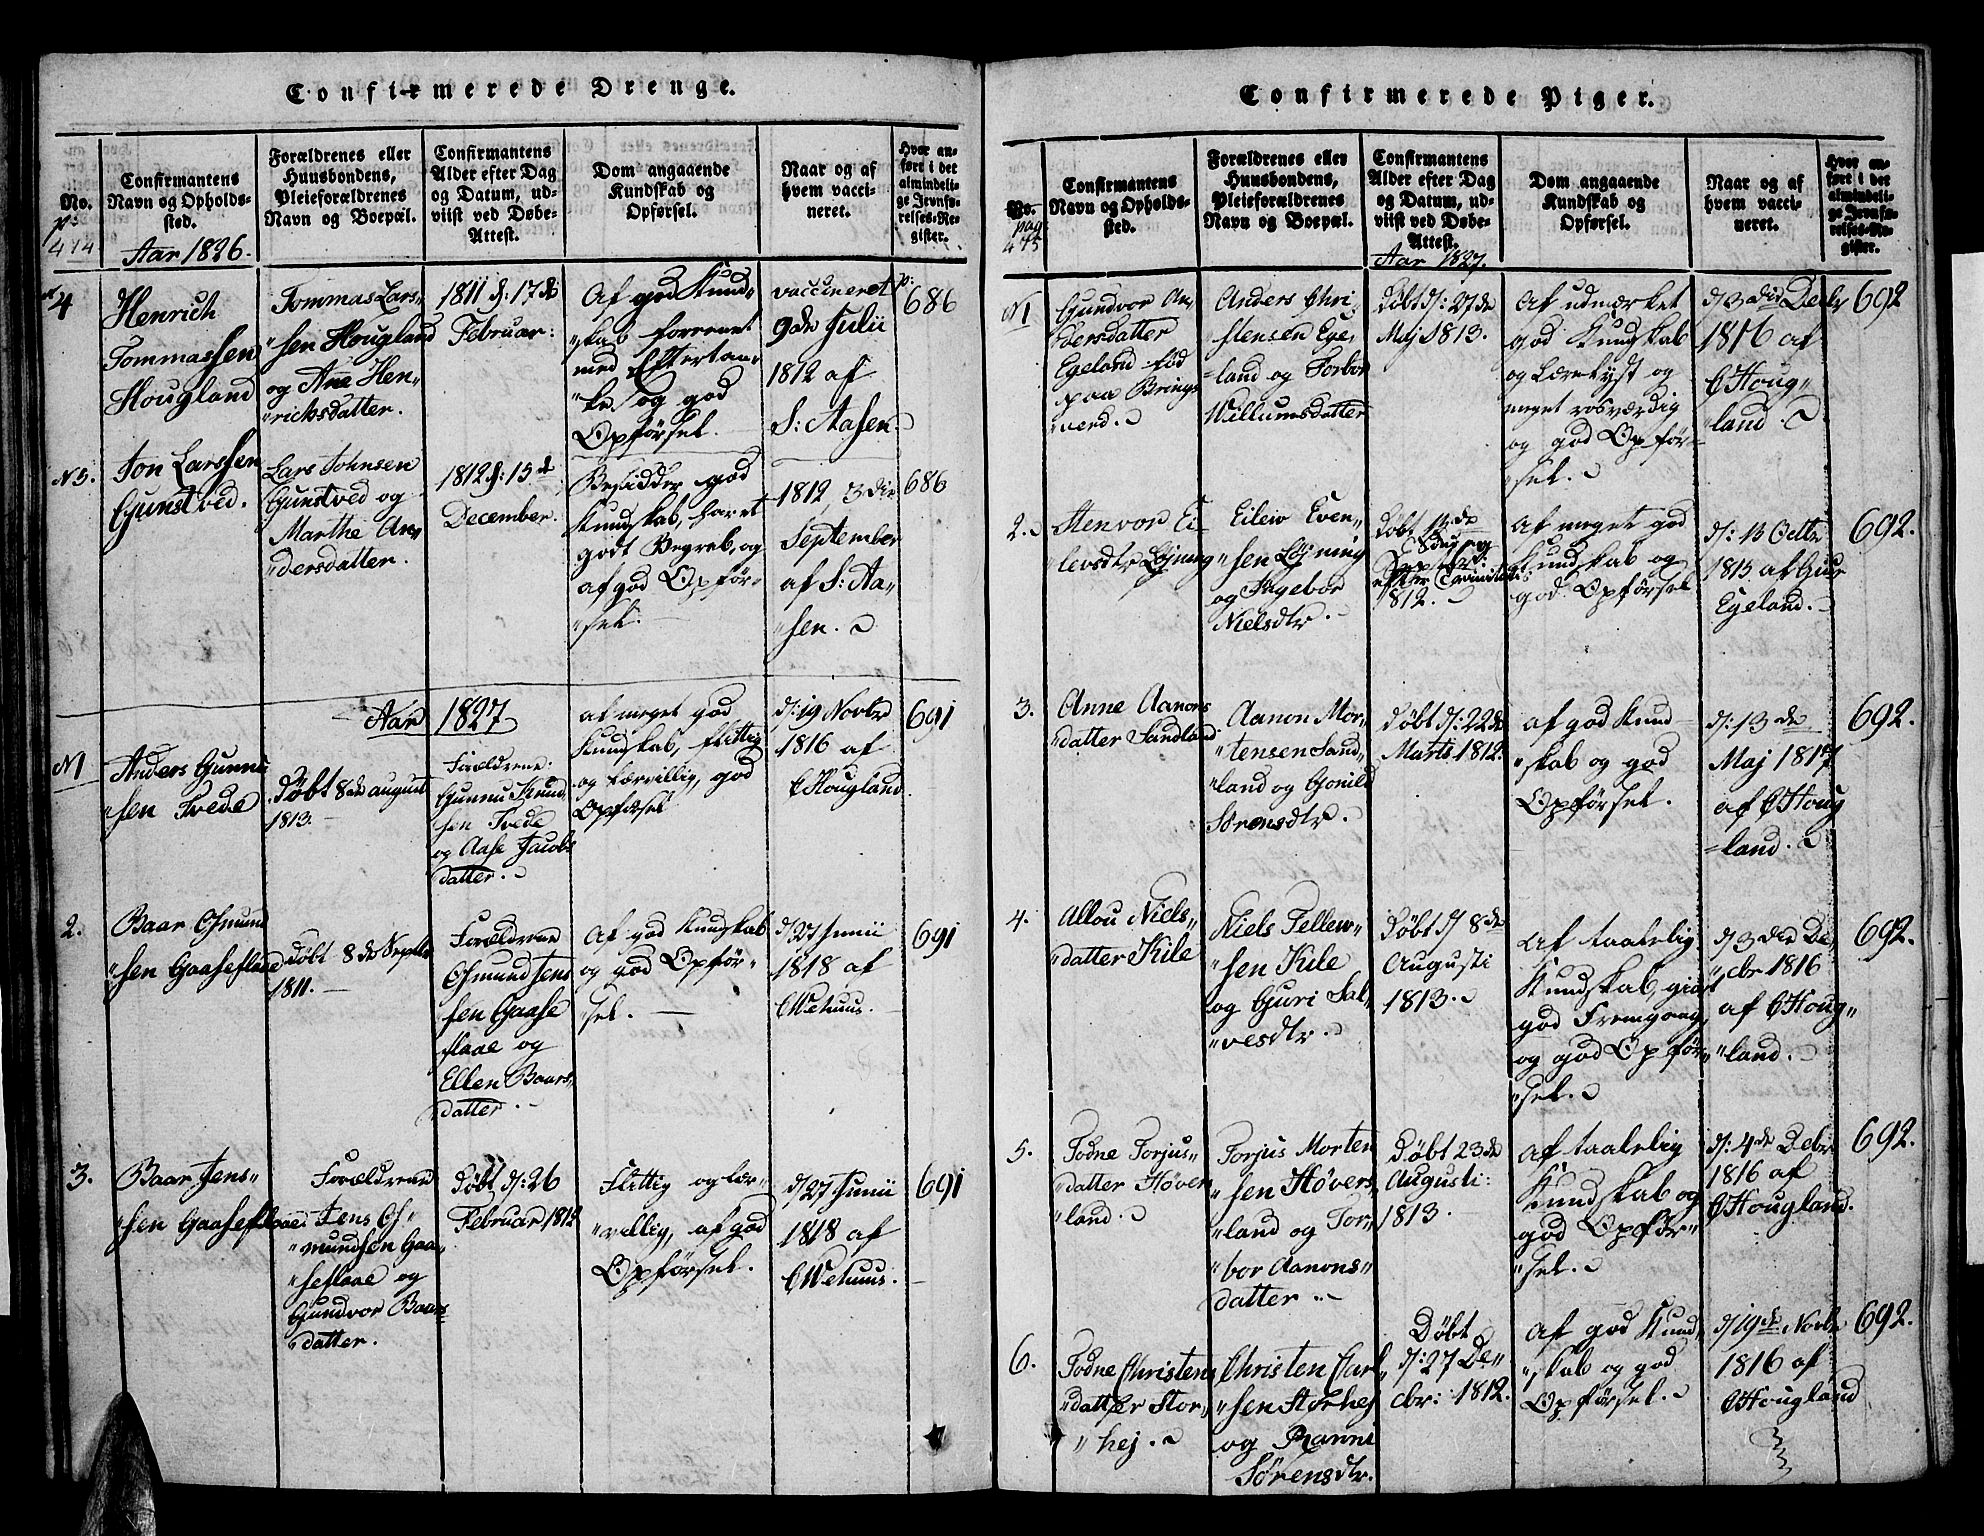 Confirmerede Drenge.
No.
p:
474
Confirmantens
Navn og Opholds-
sted.
Aar 1826.
Forældrenes eller
Huusbondens,
Pleieforældrenes
Navn og Boepæl.
Confirmantens
Alder efter Dag
og Datum, ud-
viist ved Døbe-
Attest.
Dom angaaende
Kundskab og
Opførsel.
Naar og af
hvem vacci-
neret.
Hvor an-
ført i det
almindeli-
ge Jevnfø-
relses-Re-
gister.
4
Henrich
Tommassen
Hougland
Tommas Lars„
„sen Hougland
og Ane Hen„
„richsdatter.
1811 d: 17de
Februar:
Af god Kund„
„skab forrenet
med Eftertan„
„ke og god
Opførsel.
vaccineret
9de Julii
1812 af
S: Aasen.
p:
686
N5.
Jon Larssen
Gunstved.
Lars Johnsen
Gunstved og
Marthe An„
„dersdatter.
1812 d: 15de
December.
Besidder god
Kundskab, faret
godt Begreb, og
af god Opfør„
„sel.
1812, 3die
September
af S: Aa„
„sen.
686
Aar 1827
N1
Anders Gunnu
„sen Tvede
Døbt 8de august
1813.
Forældrene:
Gunnu Knud„
sen Tvede
og Aase Jacobs
datter.
af meget god
Kundskab, flittig
og lærvillig, god
Opførsel
d: 19 Novbr
1816 af
C Hougland.
691
2.
Baar Osmund
„sen Gaaseflaae
Døbt 8de Septbr
1811.
Forældrene
Osmund Jens
sen Gaase
flaae og
Ellen Baars„
datter.
Af god Kundskab
og god Opfør„
sel.
d/27 Junii
1818 af
C Wehuus.
691
3.
Baar Jens„
„sen Gaaseflaae
Forældrene
Jens Os„
„mundsen Gaa„
„seflaae og
Gundvor Baars
„datter.
Døbt d: 26
Februar 1812
Flittig og lær„
„villig, af god
Opførsel.
d/27 Junii
1818 af
C Wehuus.
691
Confirmerede Piger.
No.
pag
475
Confirmantens
Navn og Opholds-
sted.
Forældrenes eller
Huusbondens,
Pleieforældrenes
Navn og Boepæl.
Confirmantens
Alder efter Dag
og Datum, ud-
viist ved Døbe-
Attest.
Aar 1827.
Dom angaaende
Kundskab og
Opførsel.
Naar og af
hvem vacci-
neret.
Hvor an-
ført i det
almindeli-
ge Jevnfø-
relses-Re-
gister.
N1
Gundvor An„
„dersdatter
Egeland fød
paa Brings
„verd.
Anders Chri„
„stensen Ege„
„land og Torbor
Willumsdatter
Døbt d: 27de
Maj 1813.
Af udmærket
god Kundskab
og Lærelyst og
meget rosværdig
og god Opfør„
„sel.
d/3die Decbr
1816 af
C Houg„
„land.
692
2.
Stenvor Ei„
„levsdtr Løjning
Eilew Even„
„sen Løjning
og Ingebor
Nielsdtr.
Døbt 13de
Søndag
efter Trinitatis
1812.
Af meget god
Kundskab og
god Opførsel
d: 13 Octbr
1815 af Gur
Egeland.
692.
3.
Anne Aanons
„datter Sandland
Aanon Mor„
„tensen Sand„
„land og Gonild
Sørensdtr.
Døbt d: 22de
Marts 1812.
af god Kund„
„skab og god
Opførsel.
d: 13de
Maj 1817
af C Houg
„land.
692.
4.
Allou Niels„
„datter Kile
Niels Tellew„
„sen Kile
og Guri Sal„
„vesdtr.
Døbt d 8de
Augusti
1813.
Af taalelig
Kundskab, giort
god Fremgang,
og god Opfør„
„sel.
d/3die De„
„cbr 1816
af C Houg„
„land.
692.
5.
Todne Torjus„
„datter Høvers
„land.
Torjus Morten
„sen Høvers„
„land og Tor„
„bor Aanons„
datter.
Døbt 23de
Augusti:
1813.
Af taalelig
Kundskab og
god Opfør„
„sel.
d: 4de Decbr
1816 af
C Hougland.
692.
6.
Todne Christens„
„datter Stor„
„hej.
Christen Carl„
„sen Storhej
og Ranni
Sørensdtr.
Døbt
d: 27 De„
cbr: 1812.
Af god Kund„
„skab og god
Opførsel.
d/19de Novbr
1816 af
C Hougland
692.